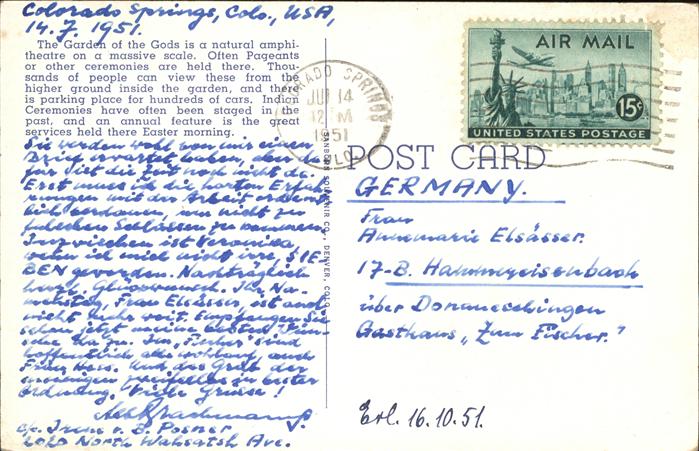 Colorado Springs, Colo., USA,
14.7.1951.
The Garden of the Gods is a natural amphi-
theatre on a massive scale. Often Pageants
or other ceremonies are held there. Thou-
sands of people can view these from the
higher ground inside the garden, and there
is parking place for hundreds of cars. Indian
Ceremonies have often been staged in the
past, and an annual feature is the great
services held there Easter morning.
Sie werden wohl von mir einen
Brief erwartet haben, aber da-
für ist die Zeit noch nicht da.
Erst muss ich die harten Erfah-
rungen mit der Arbeit ordent-
lich verdauen, um nicht zu
falschen Schlüssen zu kommen.
Inzwischen ist Veronika,
wenn ich mich nicht irre, SIE-
BEN geworden. Nachträglich
herzl. Glückwunsch. Ihr Na-
menstag, Frau Elsässer, ist auch
nicht mehr weit. Empfangen Sie
schon jetzt meine besten Wün-
sche dazu. Im "Fischer" sind
hoffentlich alle wohlauf, auch
Frau Hess. Und das Grab der
meinigen zweifellos in bester
Ordnung. Viele Grüsse!
c/o Irene v. B. Posner
2020 North Wahsatch Ave.
SANBORN SOUVENIR CO., DENVER, COLO.
COLORADO SPRINGS
JUL 14
12 M
1951
COLO.
AIR MAIL
15¢
UNITED STATES POSTAGE
POST CARD
GERMANY.
Frau
Annemarie Elsässer.
17-B. Hammereisenbach
über Donaueschingen
Gasthaus "Zum Fischer."
Erl. 16.10.51.